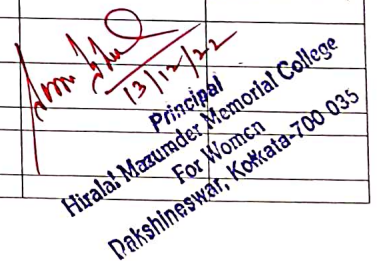 13/12/22
Principal
Hiralal Mazumder Memorial College
For Women
Dakshineswar, Kolkata-700 035